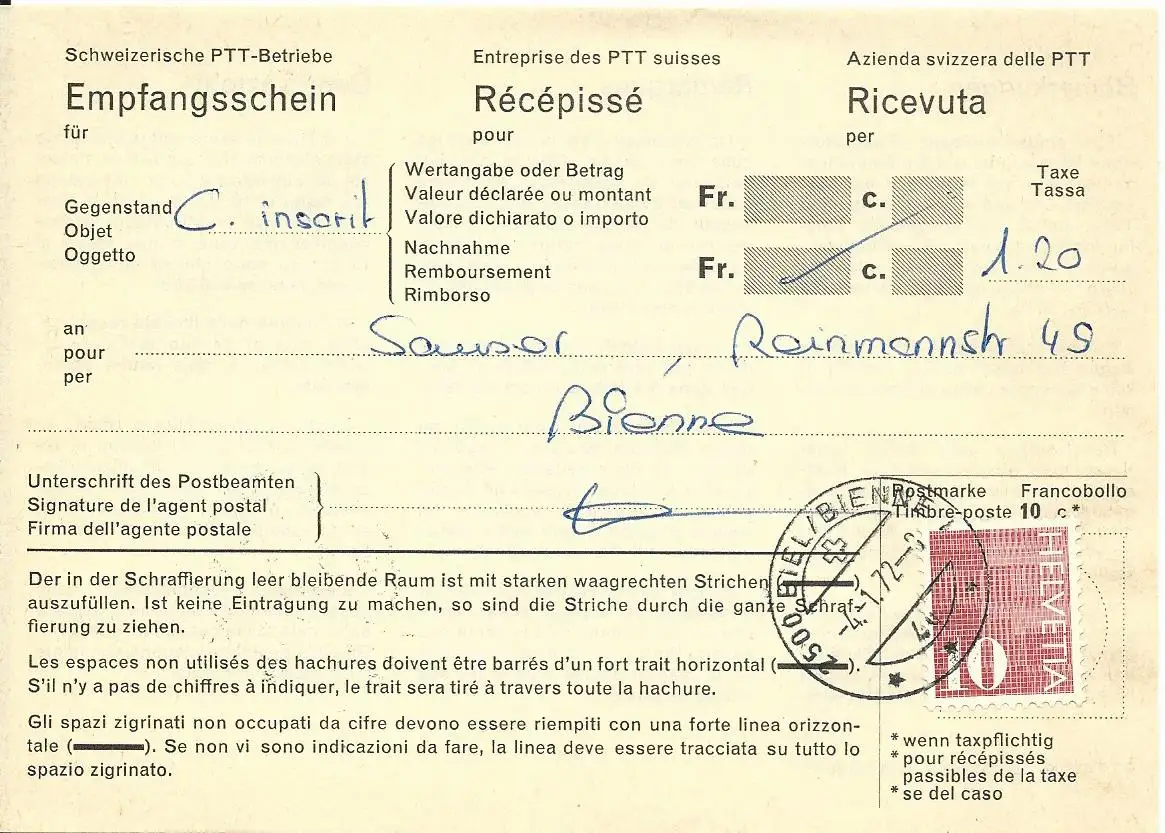 Schweizerische PTT-Betriebe
Empfangsschein
für
Entreprise des PTT suisses
Récépissé
pour
Azienda svizzera delle PTT
Ricevuta
per
Gegenstand
Objet
Oggetto
C. inscrit
Wertangabe oder Betrag
Valeur déclarée ou montant
Valore dichiarato o importo
Fr. c.
Nachnahme
Remboursement
Rimborso
Fr. c.
Taxe
Tassa
1.20
an
pour
per
Reinmannstr 49
Bienne
Unterschrift des Postbeamten
Signature de l'agent postal
Firma dell'agente postale
Postmarke Francobollo
Timbre-poste 10 c*
2500 BIEL/BIENNE
-4.-1.72-
HELVETIA
10
Der in der Schraffierung leer bleibende Raum ist mit starken waagrechten Strichen ( )
auszufüllen. Ist keine Eintragung zu machen, so sind die Striche durch die ganze Schraf-
fierung zu ziehen.
Les espaces non utilisés des hachures doivent être barrés d'un fort trait horizontal ( ).
S'il n'y a pas de chiffres à indiquer, le trait sera tiré à travers toute la hachure.
Gli spazi zigrinati non occupati da cifre devono essere riempiti con una forte linea orizzon-
tale ( ). Se non vi sono indicazioni da fare, la linea deve essere tracciata su tutto lo
spazio zigrinato.
* wenn taxpflichtig
* pour récépissés
passibles de la taxe
* se del caso